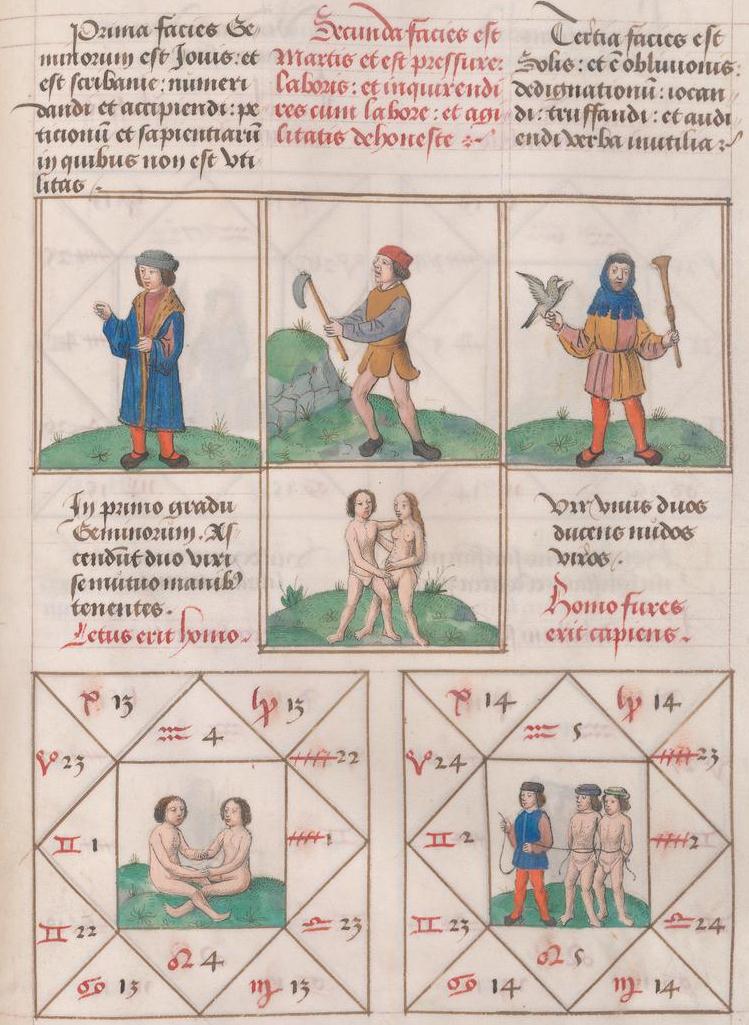 Prima facies Ge-
minorum est Jouis: et
est scribanie: numeri
dandi et accipiendi: pe
ticionū et sapientiarū
in quibus non est vti
litas .
Secunda facies est
Martis et est pressure:
laboris: et inquirendi
res cum labore: et agi
litatis dehoneste
Tertia facies est
Solis: et ē obliuionis:
dedignationū: iocan
di: truffandi: et audi
endi verba inutilia
In primo gradu
Geminorum. As
cendūt duo viri
se mutuo manibꝰ
tenentes.
Letus erit homo.
Vir vnus duos
ducens nudos
viros.
Homo fures
erit capiens.
13
13
♒ 4
♈ 23
22
♊ 1
1
♊ 22
♎ 23
♌ 4
♋ 13
♍ 13
14
14
♒ 5
♈ 24
23
♊ 2
2
♊ 23
♎ 24
♌ 5
♋ 14
♍ 14